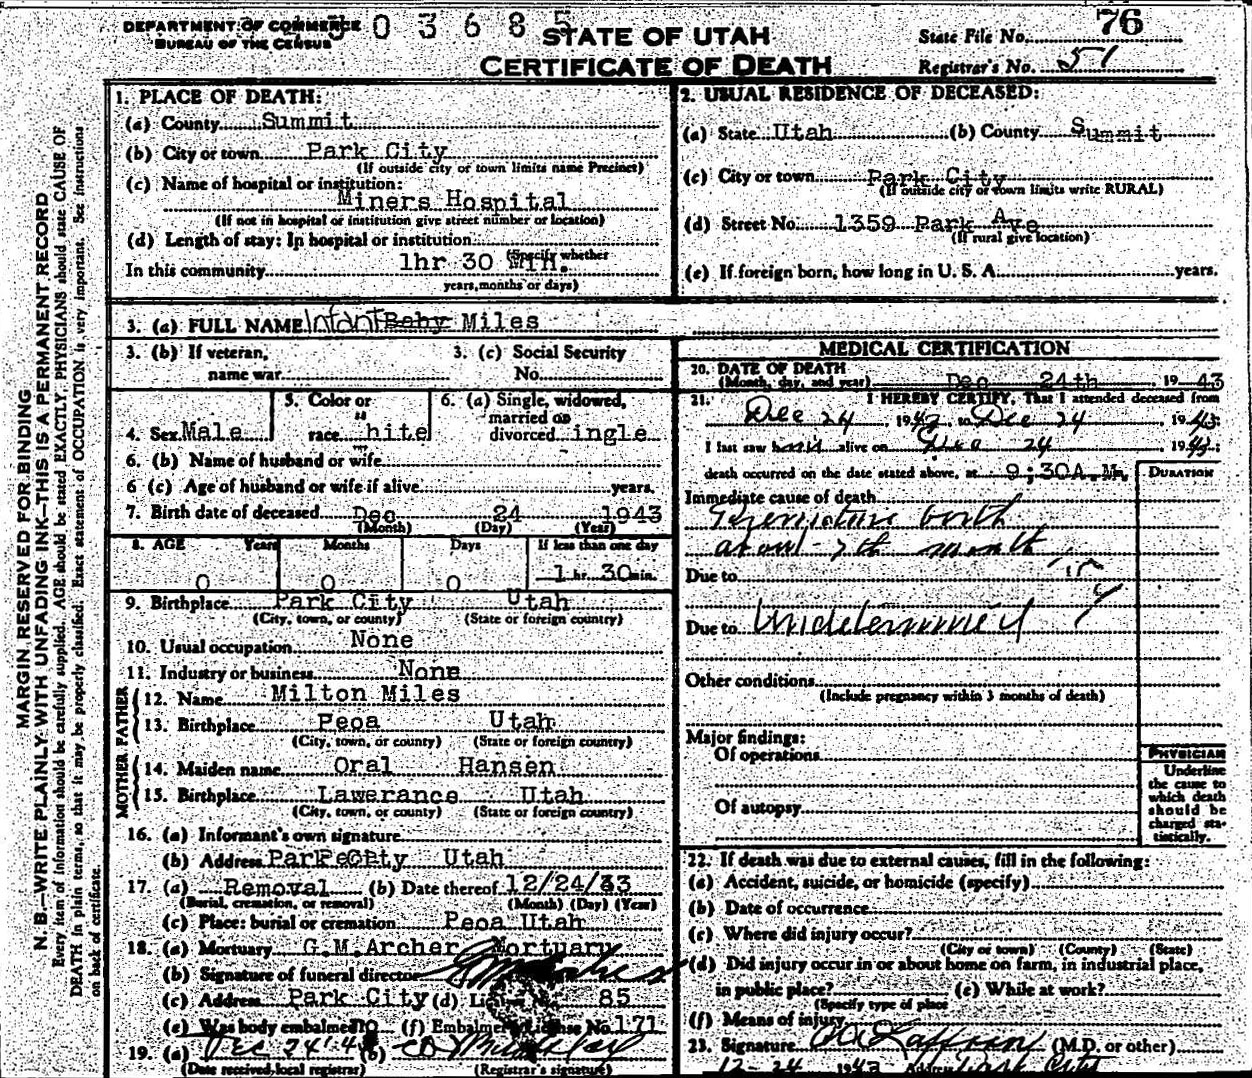 DEPARTMENT OF COMMERCE
BUREAU OF THE CENSUS
0 3 6 8 5
STATE OF UTAH
CERTIFICATE OF DEATH
State File No. 76
Registrar's No. 51
MARGIN RESERVED FOR BINDING
N. B.—WRITE PLAINLY WITH UNFADING INK—THIS IS A PERMANENT RECORD
Every item of information should be carefully supplied. AGE should be stated EXACTLY. PHYSICIANS should state CAUSE OF
DEATH in plain terms, so that it may be properly classified. Exact statement of OCCUPATION is very important. See instructions
on back of certificate.
1. PLACE OF DEATH:
(a) County Summit
(b) City or town Park City
(If outside city or town limits name Precinct)
(c) Name of hospital or institution:
Miners Hospital
(If not in hospital or institution give street number or location)
(d) Length of stay: In hospital or institution
(Specify whether
In this community 1hr 30 Min.
years, months or days)
2. USUAL RESIDENCE OF DECEASED:
(a) State Utah (b) County Summit
(c) City or town Park City
(If outside city or town limits write RURAL)
(d) Street No. 1359 Park Ave
(If rural give location)
(e) If foreign born, how long in U. S. A. years.
3. (a) FULL NAME Infant Baby Miles
3. (b) If veteran, name war
3. (c) Social Security No.
4. Sex Male
5. Color or race hite
6. (a) Single, widowed, married or divorced ingle
6. (b) Name of husband or wife
6 (c) Age of husband or wife if alive years.
7. Birth date of deceased Dec 24 1943
(Month) (Day) (Year)
8. AGE Years Months Days If less than one day
0 0 0 1 hr. 30 min.
9. Birthplace Park City Utah
(City, town, or county) (State or foreign country)
10. Usual occupation None
11. Industry or business None
FATHER
12. Name Milton Miles
13. Birthplace Peoa Utah
(City, town, or county) (State or foreign country)
MOTHER
14. Maiden name Oral Hansen
15. Birthplace Lawerance Utah
(City, town, or county) (State or foreign country)
16. (a) Informant's own signature
(b) Address City Utah
17. (a) Removal (b) Date thereof 12/24/
(Burial, cremation, or removal) (Month) (Day) (Year)
(c) Place: burial or cremation Peoa Utah
18. (a) Mortuary G.M.Archer Mortuary
(b) Signature of funeral director
(c) Address Park City (d) License No. 85
(e) Was body embalmed no (f) Embalmer's License No. 171
19. (a) Dec 24 '4 (b)
(Date received local registrar) (Registrar's signature)
MEDICAL CERTIFICATION
20. DATE OF DEATH
(Month, day, and year) Dec 24th, 19 43
21. I HEREBY CERTIFY, That I attended deceased from
Dec 24, 1943, to Dec 24, 1943;
I last saw him alive on Dec 24 1943;
death occurred on the date stated above, at 9;30A.M.
DURATION
Immediate cause of death
Premature birth
about 7th month
Due to
Due to Undetermined
Other conditions
(Include pregnancy within 3 months of death)
Major findings:
Of operations
Of autopsy
PHYSICIAN
Underline
the cause to
which death
should be
charged sta-
tistically.
22. If death was due to external causes, fill in the following:
(a) Accident, suicide, or homicide (specify)
(b) Date of occurrence
(c) Where did injury occur?
(City or town) (County) (State)
(d) Did injury occur in or about home on farm, in industrial place,
in public place? (e) While at work?
(Specify type of place
(f) Means of injury
23. Signature (M.D. or other)
12-24 1943 Address Park City